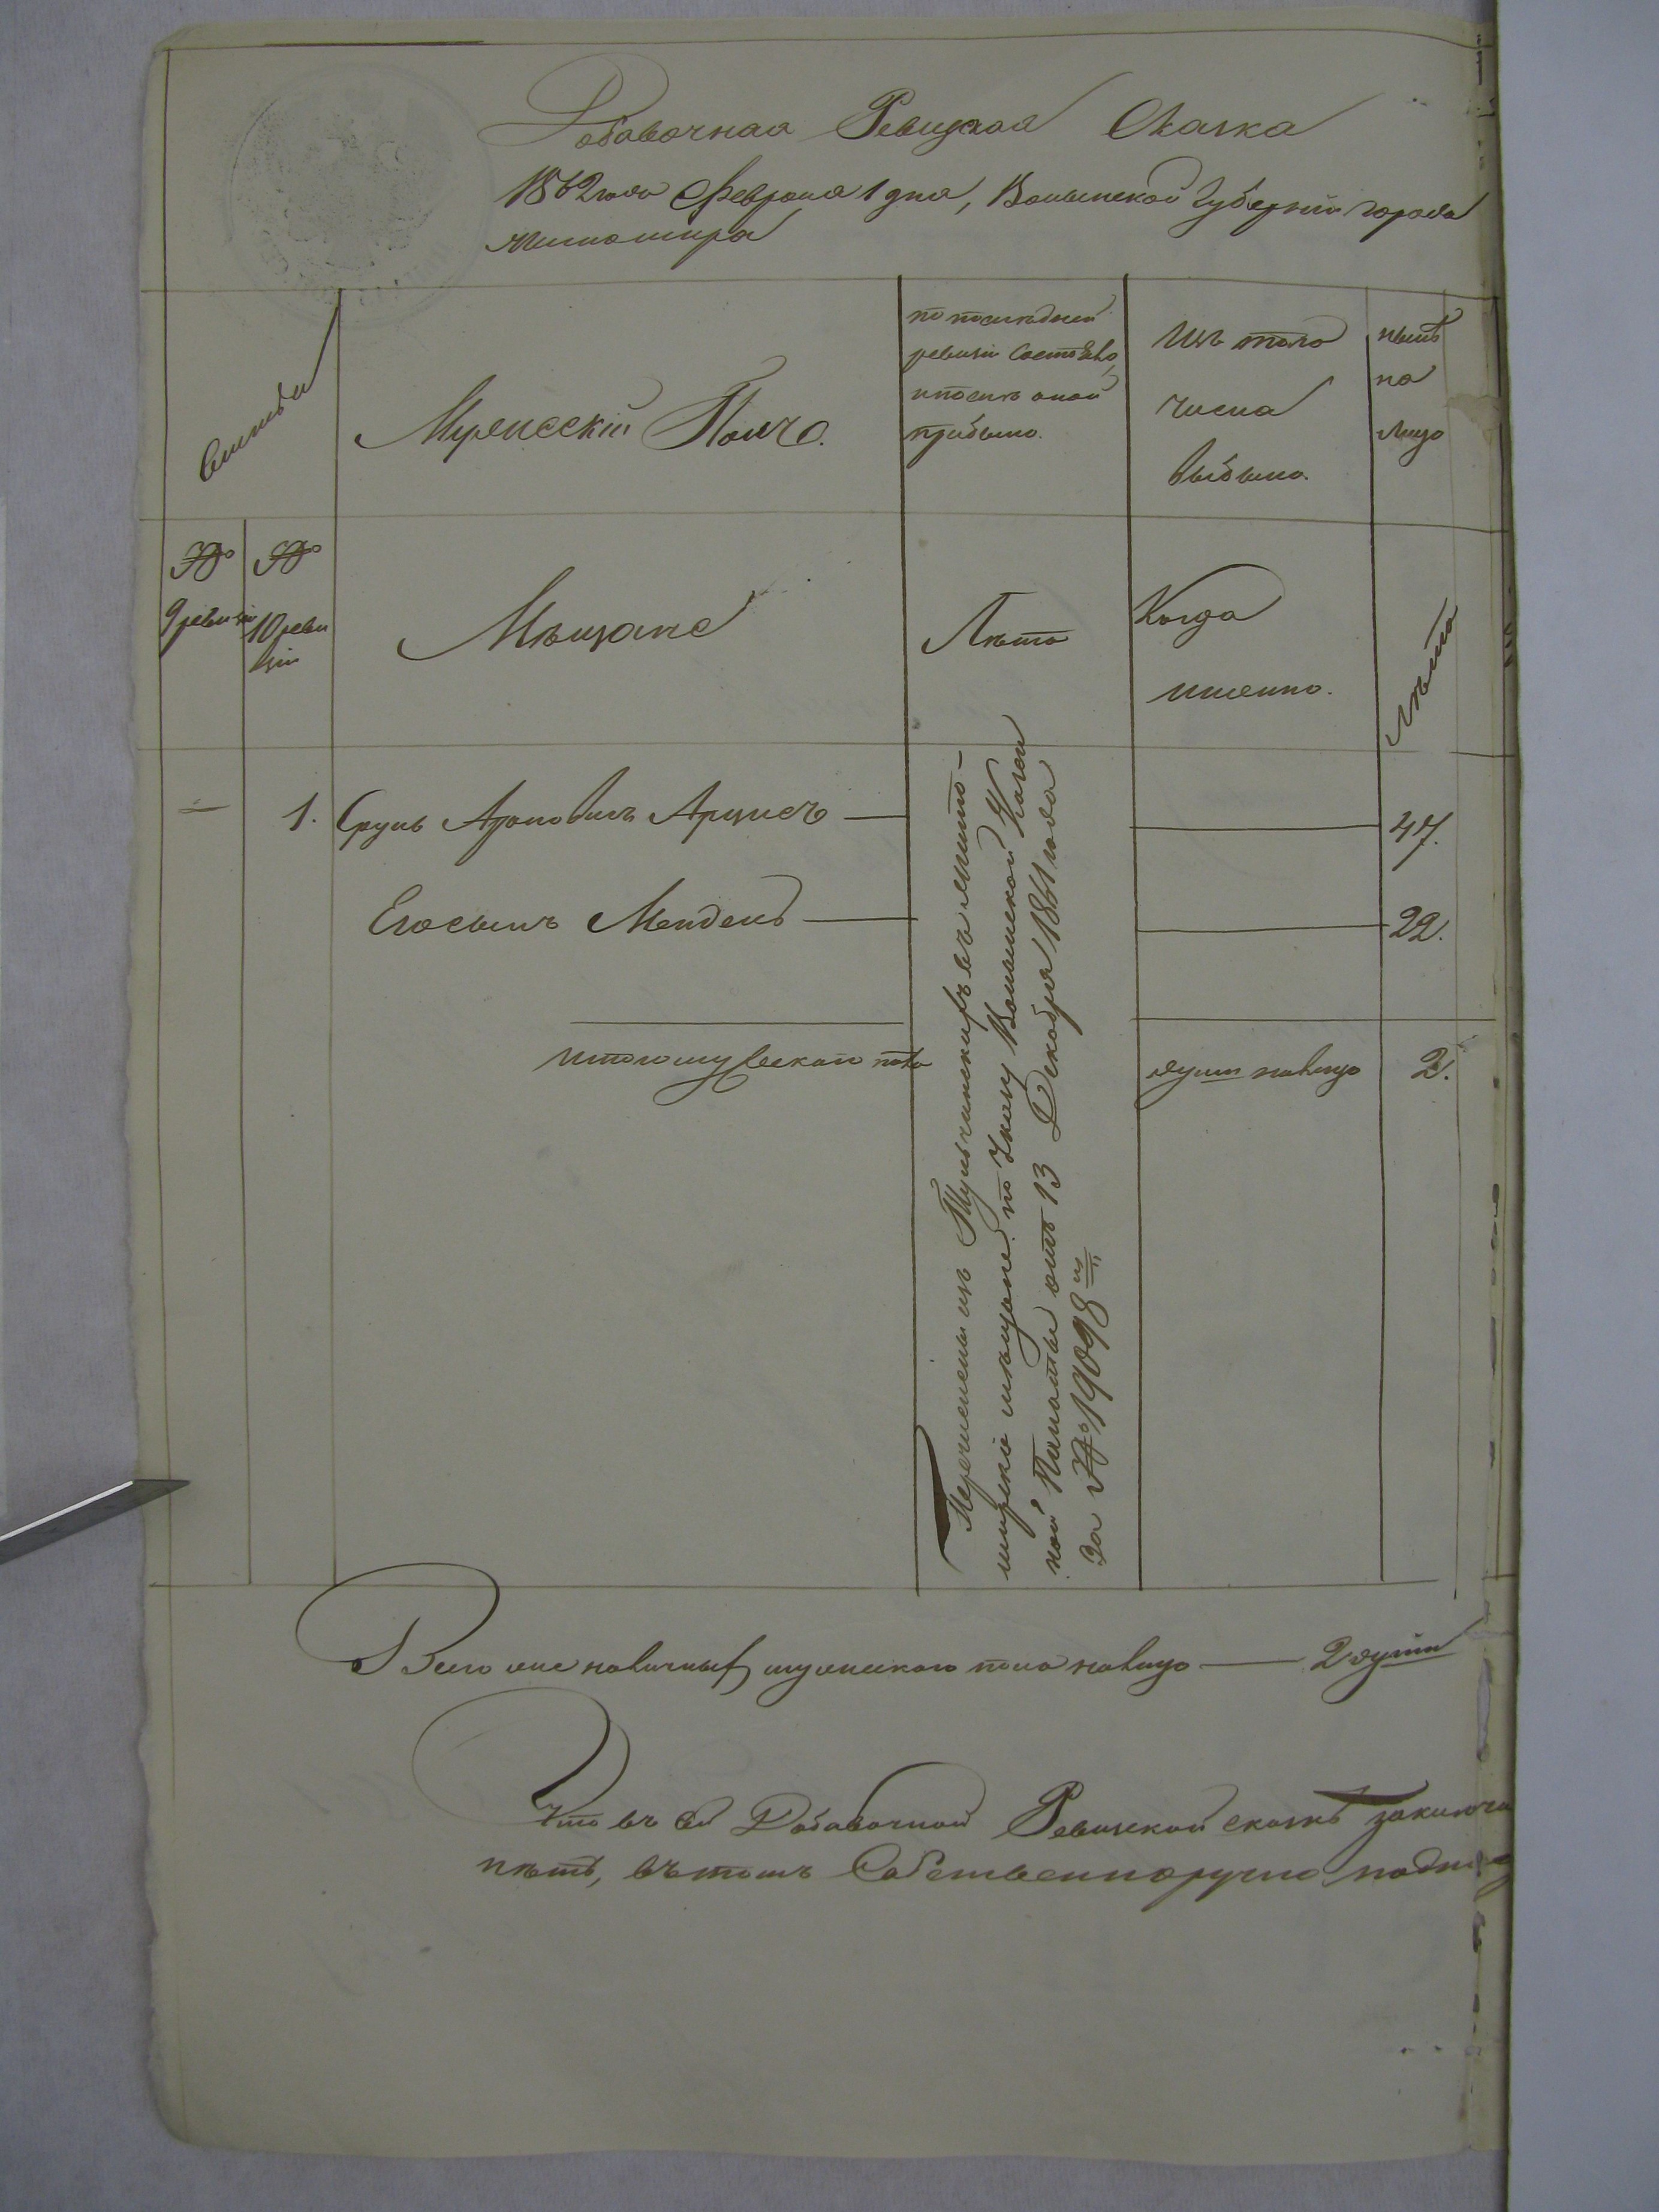 Добавочная Ревизская Сказка
1862 года Февраля 1 дня, Волынской Губернии города
Житомира
Семьи
Мужескій Полъ.
по последней
ревизіи состояло,
и после оной
прибыло.
Изъ того
числа
выбыло.
ныне
на
лицо
№
9 ревизіи
№
10 реви
зіи
Мѣщане
Лѣта
Когда
именно.
Лѣта
1. Сруль Ароновичъ
47.
Его сынъ Мендель
22.
Итого мужескаго пола
душъ на лицо 2.
Перечислены изъ въ Жито-
мирскіе мѣщане по Указу Волынской Казен
ной Палаты отъ 13 Декабря 1861 года
за № 19098 м
Всего же наличныхъ мужескаго пола на лицо 2 души
Что въ сей Добавочной Ревизской сказкѣ
въ томъ Собственноручно